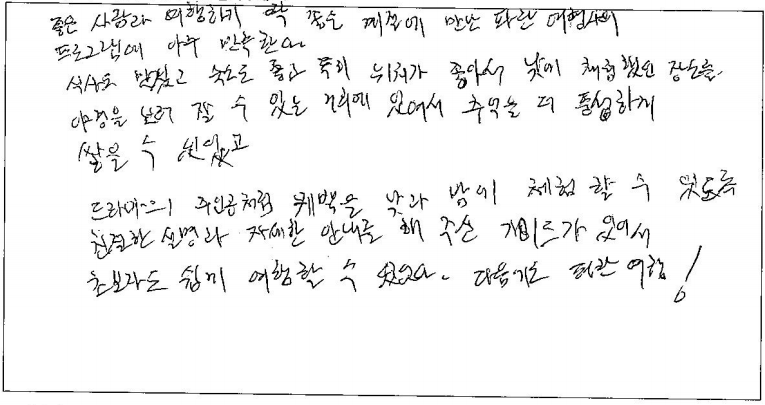 좋은 사람과 여행하기 딱 좋은 계절에 만난 파란 여행사의
프로그램에 아주 만족한다.
식사도 맛있고 숙소도 좋고 특히 위치가 좋아서 낮에 체험했던 장소를
야경을 보러 갈 수 있는 거리에 있어서 추억을 더 풍성하게
쌓을 수 있었고
드라마의 주인공처럼 궤백을 낮과 밤에 체험 할 수 있도록
친절한 설명과 자세한 안내를 해 주신 가이드가 있어서
초보자도 쉽게 여행할 수 있었다. 다음기도 파란 여행!